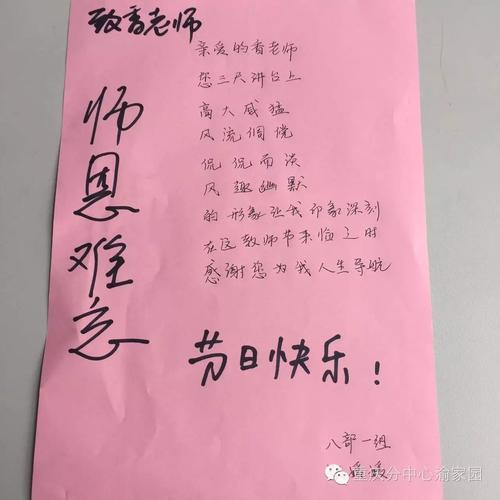 致香老师
师恩难忘
亲爱的香老师
您三尺讲台上
高大威猛
风流倜傥
侃侃而谈
风趣幽默
的形象让我印象深刻
在这教师节来临之时
感谢您为我人生导航
节日快乐！
八部一组
媛媛
重庆分中心渝家园